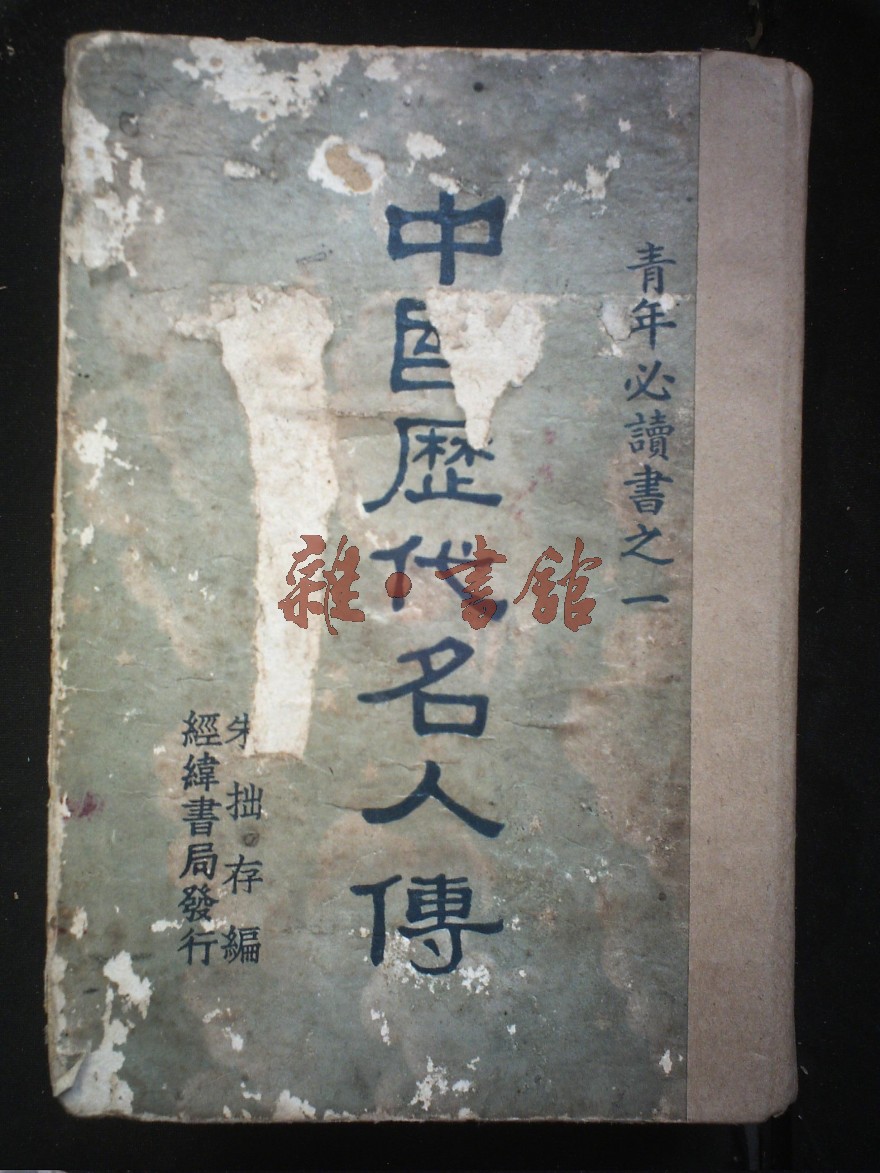 青年必讀書之一
中國歷代名人傳
朱拙存編
經緯書局發行
雜·書館